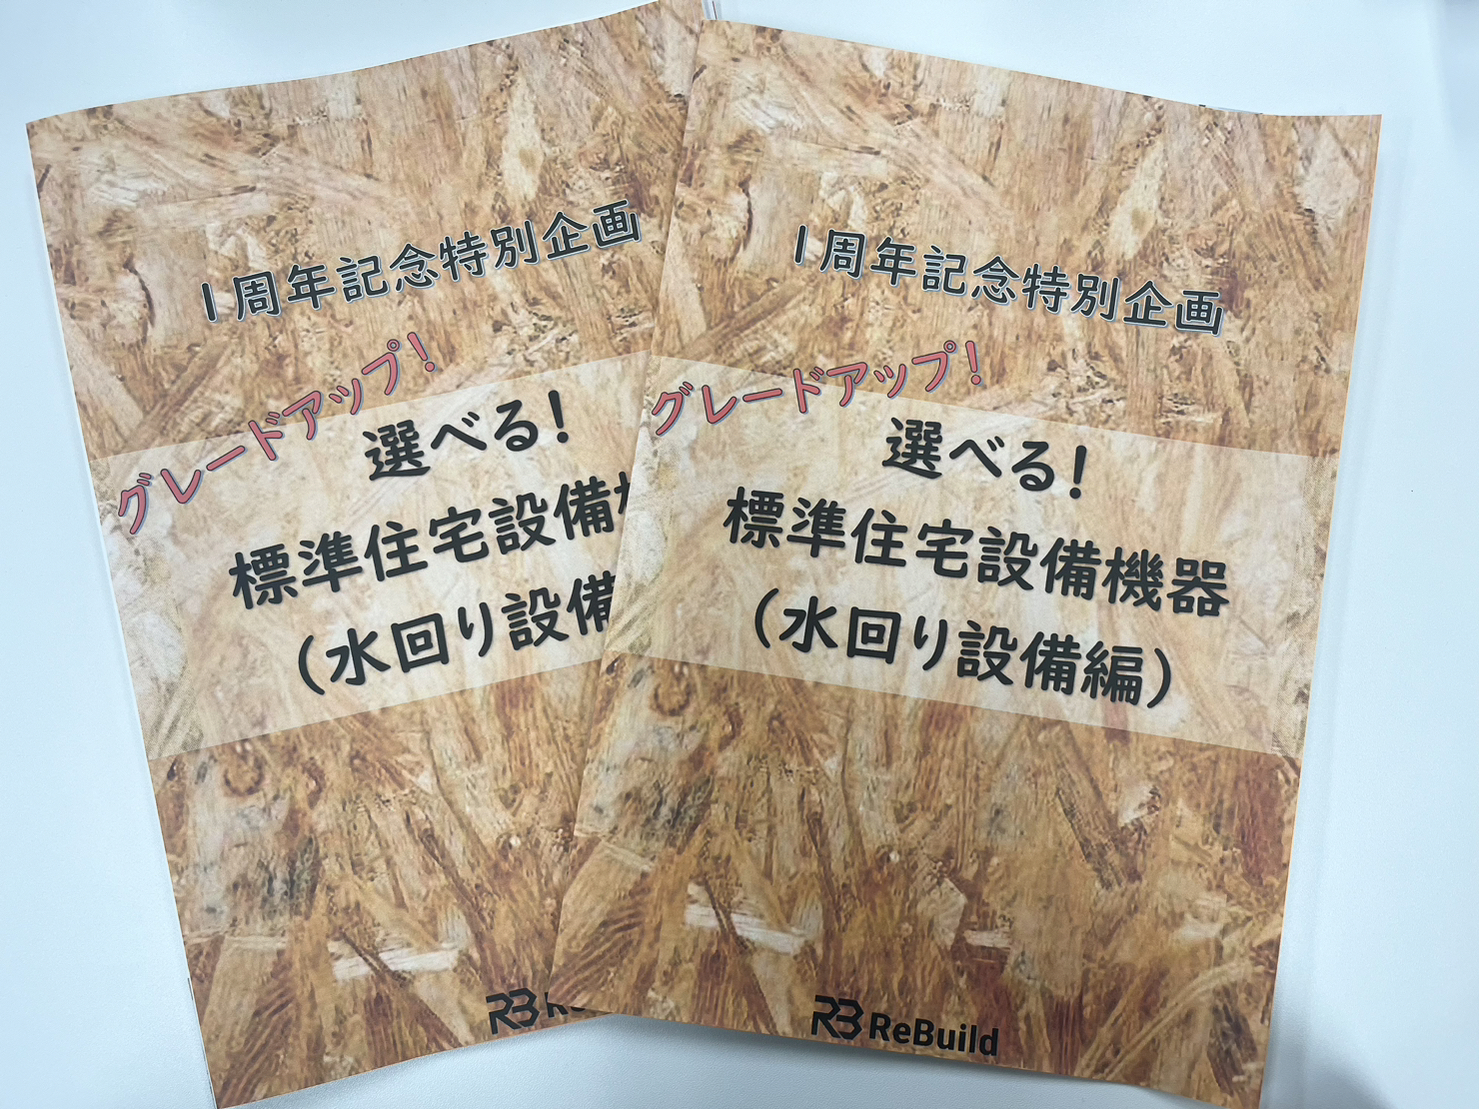 1周年記念特別企画
グレードアップ!
選べる!
標準住宅設備
(水回り設備
RB
1周年記念特別企画
グレードアップ!
選べる!
標準住宅設備機器
(水回り設備編)
RB ReBuild